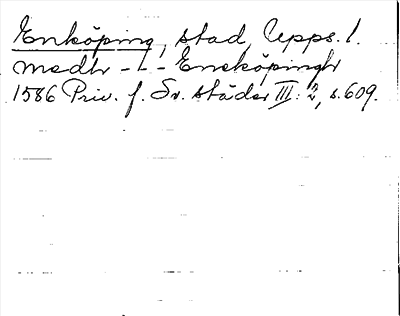 Enköping, stad, Upps. l.
medh - l - Eneköpingh
1586 Priv. f. Sv. städer III: 2, s. 609.